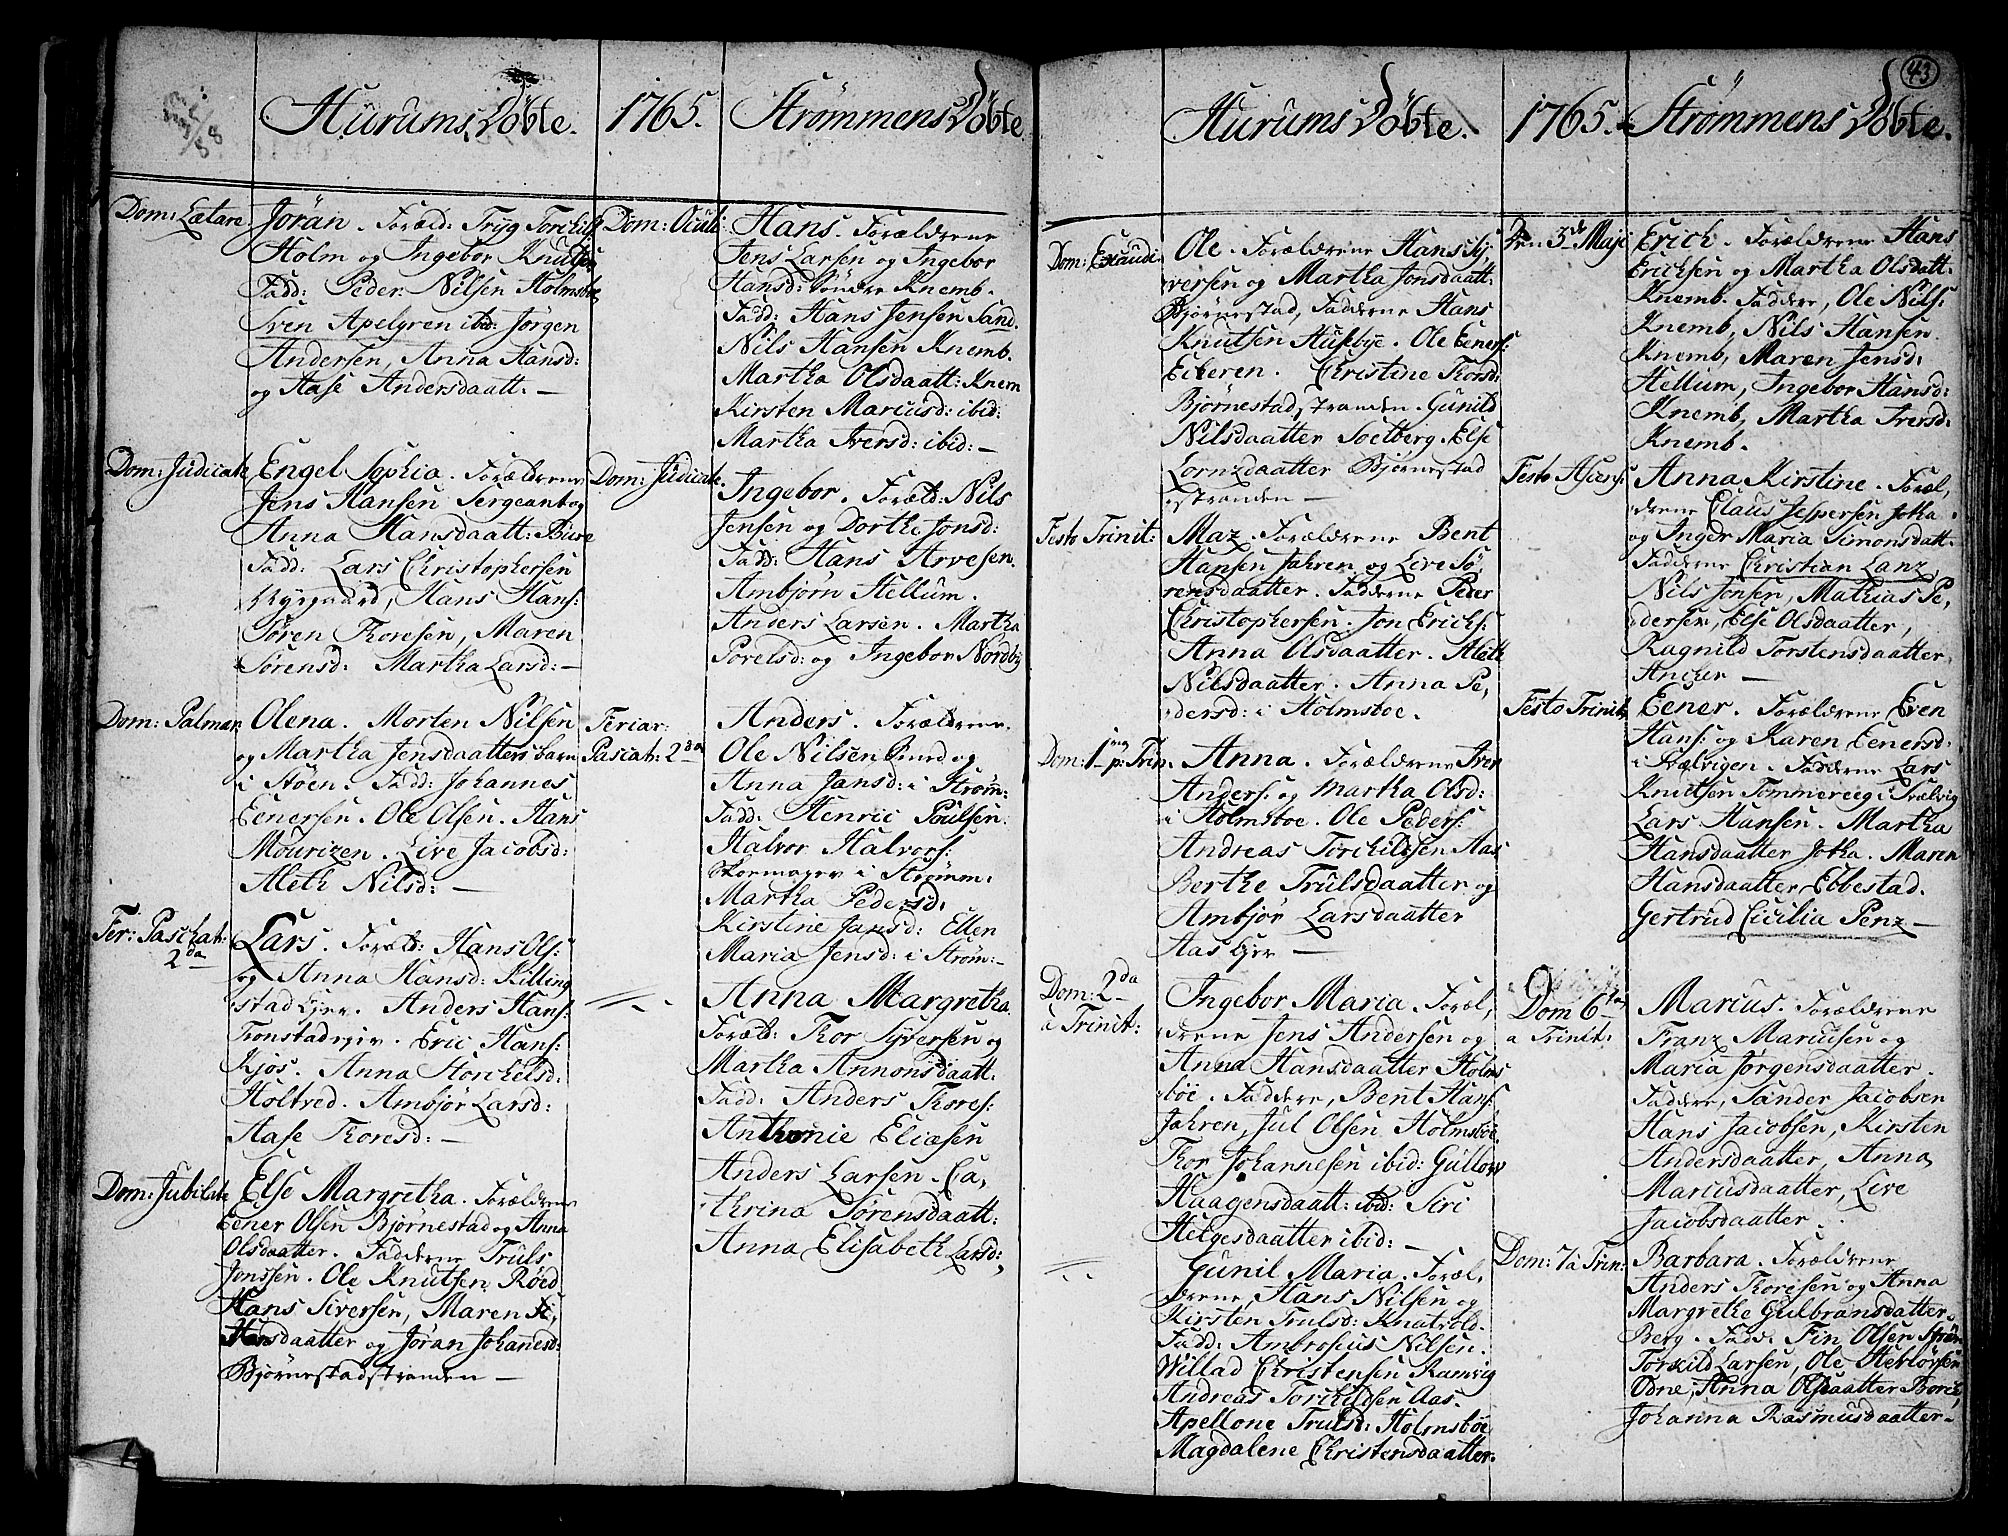 Hurums Døbte.
Dom: Lætare
Joran. Foræld: Tryg Torchils
Holm og Ingebor Knuts
Fadd: Peder Nilsen Holmsboe
Sven Apelgren ibid: Jørgen
Andersen, Anna Hansd:
og Aase Andersdaatt. —
Dom: Judicate
Engel Sophia. Forældrene
Jens Hansen Sergeant og
Anna Hansdaatt: Bure
Fadd: Lars Christophersen
Kyrgaard, Hans Hans:
Søren Thoresen, Maren
Sørensd: Martha Larsd: —
Dom: Palmar
Olena. Morten Nilsen
og Martha Jensdaatters barn
i Støen. Fadd: Johannes
Eenersen. Ole Olsen. Hans
Mourizen. Live Jacobsd:
Aleth Nilsd: —
Fer: Paschat:
2da
Lars. Foræld: Hans Ols:
og Anna Hansd: Killing
stad Ejer. Anders Hans:
Tronstad Eric Hans:
Kjøs. Anna Storchelsd:
Holtved. Ambjør Larsd:
Aase Thoresd: —
Dom: Jubilate
Else Margretha. Forældrene
Eener Olsen Bjørnestad og Anna
Olsdaatter. Fadderne Truls
Jonssen. Ole Knutsen Røed
Hans Siversen, Maren
Hansdaatter og Joran Johannesd:
Bjørnestadstranden —
1765. Strømmens Døbte
Dom: Oculi:
Hans. Forældrene
Jens Larsen og Ingebor
Hansd: Søndre Knemb.
Fadd: Hans Jensen Sand.
Nils Hansen Knemb.
Martha Olsdaatt: Knem
Kirsten Marcusd: ibid:
Martha Iversd: ibid: —
Dom: Judicate.
Ingebor. Foræld: Nils
Jensen og Dorthe Jonsd:
Fadd: Hans Arvesen.
Ambjørn Hellum.
Anders Larsen. Martha
Porelsd: og Ingebor Nordby
Feriar:
Pascat: 2da
Anders. Forældrene.
Ole Nilsen Smed og
Anna Jansd: i Strøm:
Fadd: Henric Poulsen.
Halvor Halvors:
Skomager i Strømm:
Martha Pedersd:
Kirstine Jansd: Ellen
Maria Jensd: i Strøm: —
Anna Margretha.
Foræld: Thor Syversen og
Martha Annonsdaatt.
Fadd: Anders Thores:
Anthonie Eliasen
Anders Larsen. Ca,
thrina Sørensdaatt:
Anna Elisabeth Larsd:
43
Hurums Døbte.
Dom: Exaudi.
Ole. Forældrene Hans Sy,
versen og Martha Jonsdaatt:
Bjørnestad, Fadderne Hans
Knutsen Husebye. Ole Eeners:
Eckeren. Christine Thorsd:
Bjørnestadstranden. Gunild
Nilsdaatter Soelberg. Else
Lornzdaatter Bjørnestad
stranden —
Festo Trinit:
Maz. Forældrene Bent
Hansen Jahren og Live Sø,
rensdaatter. Fadderne Peder
Christophersen. Jon Erichs:
Anna Olsdaatter. Aleth
Nilsdaatter. Anna Pe,
dersd: i Holmsboe.
Dom: 1ma p: Trin.
Anna. Forældrene Iver
Anders: og Martha Olsd:
i Holmsboe. Ole Peders:
Andreas Torchildsen Aas
Berthe Trulsdaatter og
Ambjør Larsdaatter
Aas Ejer —
Dom: 2da
à Trinit:
Ingebor Maria. Foræl,
drene Jens Andersen og
Anna Hansdaatter Holms
bøe. Faddere, Bent Hans:
Jahren, Jul Olsen Holmsbøe
Thor Johannesen ibid: Gullow
Haagensdaatt: ibid: Siri
Helgesdaatter ibid: —
Gunil Maria. Foræl,
drene, Hans Nilsen og
Kirsten Trulsd: Knatvold.
Fadd: Ambrosius Nilsen.
Willad Christensen Ramvig
Andreas Torchildsen Aas.
Apellone Trulsd: Holmsbøe
Magdalene Christensdaatter.
1765. Strømmens Døbte.
Den 3de Maji
Erich. Forældrene Hans
Erichsen og Martha Olsdatt:
Knemb. Faddere, Ole Nils:
Knemb, Nils Hansen
Knemb, Maren Jensd:
Hellum, Ingebor Hansd:
Knemb, Martha Iversd:
Knemb.
Festo Ascens:
Anna Kirstine. Foræl,
drene Claus Jespersen Jotka.
og Inger Maria Simonsdatt.
Fadderne Christian Lanz,
Nils Jonsen, Mathias Pe,
dersen, Else Olsdaatter,
Ragnild Torstensdaatter,
Ancker —
Festo Trinit:
Eener. Forældrene Even
Hans: og Karen Eenersd:
i Svælvigen. Fadderne Lars
Knutsen Tommereeg i Svælvig
Lars Hansen. Martha
Hansdaatter Jotka. Maren
Hansdaatter Ebbestad.
Gertrud Cicilia Penz —
Dom 6ta
a Trinit:
Marcus. Forældrene
Franz Marcusen og
Maria Jørgensdaatter.
Faddere, Sander Jacobsen
Hans Jacobsen, Kirsten
Andersdaatter, Anna
Marcusdaatter, Live
Jacobsdaatter.
Dom: 7 à Trin:
Barbara. Forældrene
Anders Thoresen og Anna
Margrethe Gulbransdatter
Berg. Fadd. Fin Olsen Strøm
Torkild Larsen, Ole Hertorsen
Odne, Anna Olsdaatter Borch,
Johanna Rasmusdaatter —